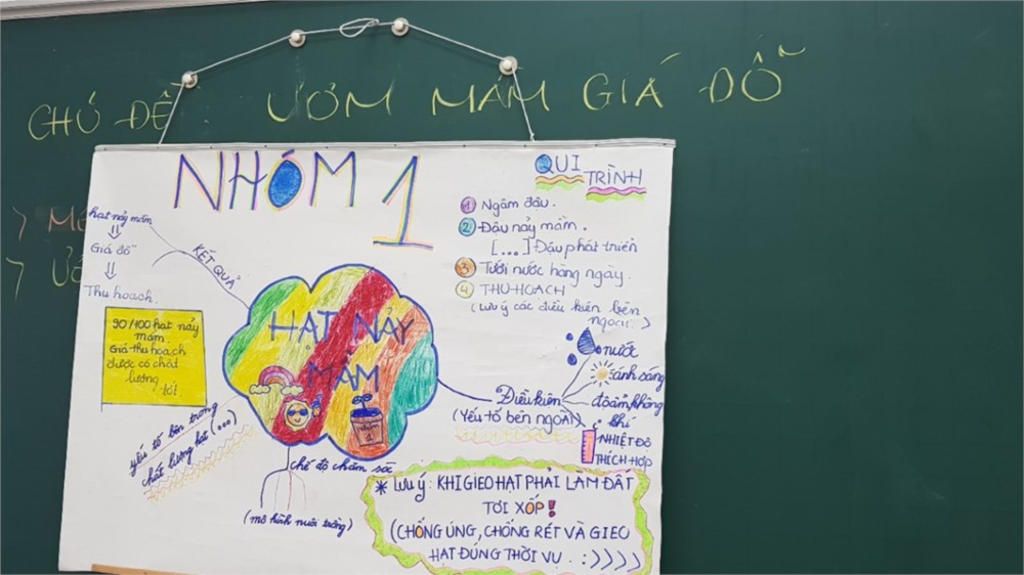 CHỦ ĐỀ: ƯƠM MẦM GIÁ ĐỖ
NHÓM 1
hạt nảy mầm
Giá đỗ
Thu hoạch.
KẾT QUẢ
90/100 hạt nảy
mầm.
Giá thu hoạch
được có chất
lượng
tốt.
HẠT NẢY
MẦM
NHÓM
1
yếu tố bên trong
chất lượng hạt (...)
chế độ chăm sóc
(mô hình nuôi trồng)
QUI TRÌNH
1 Ngâm đậu.
2 Đậu nảy mầm.
[...] Đậu phát triển
3 Tưới nước hàng ngày.
4 THU HOẠCH
(Lưu ý các điều kiện bên
ngoài.)
Điều kiện
(Yếu tố bên ngoài)
nước
ánh sáng
độ ẩm, không
khí
NHIỆT ĐỘ
THÍCH HỢP
* LƯU Ý: KHI GIEO HẠT PHẢI LÀM ĐẤT
TƠI XỐP!
(CHỐNG ÚNG, CHỐNG RÉT VÀ GIEO
HẠT ĐÚNG THỜI VỤ . :))))